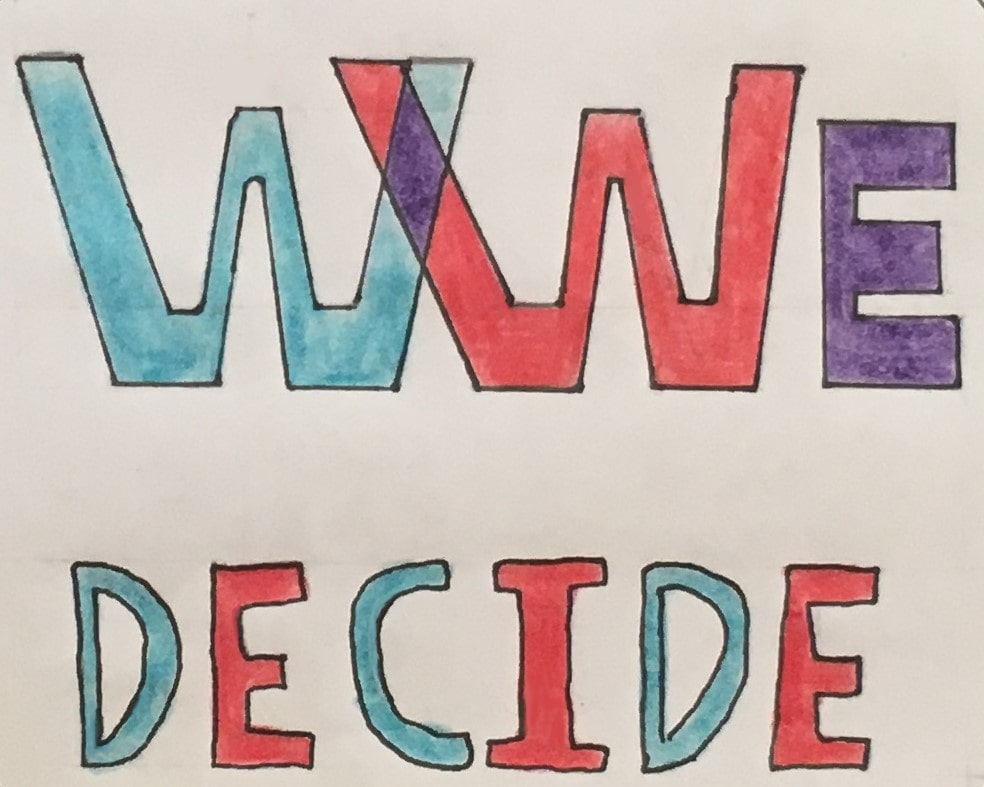 WWE
DECIDE